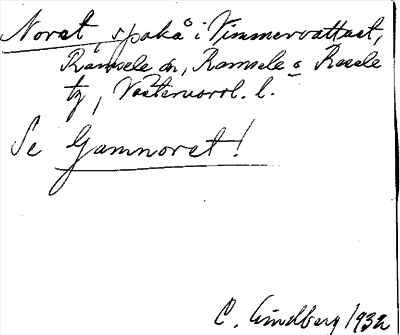 Noret, spakå i Vimmervattnet,
Ramsele sn, Ramsele o Resele
tg, Västernorrl. l.
Se Gamnoret!
C. Lindberg 1932